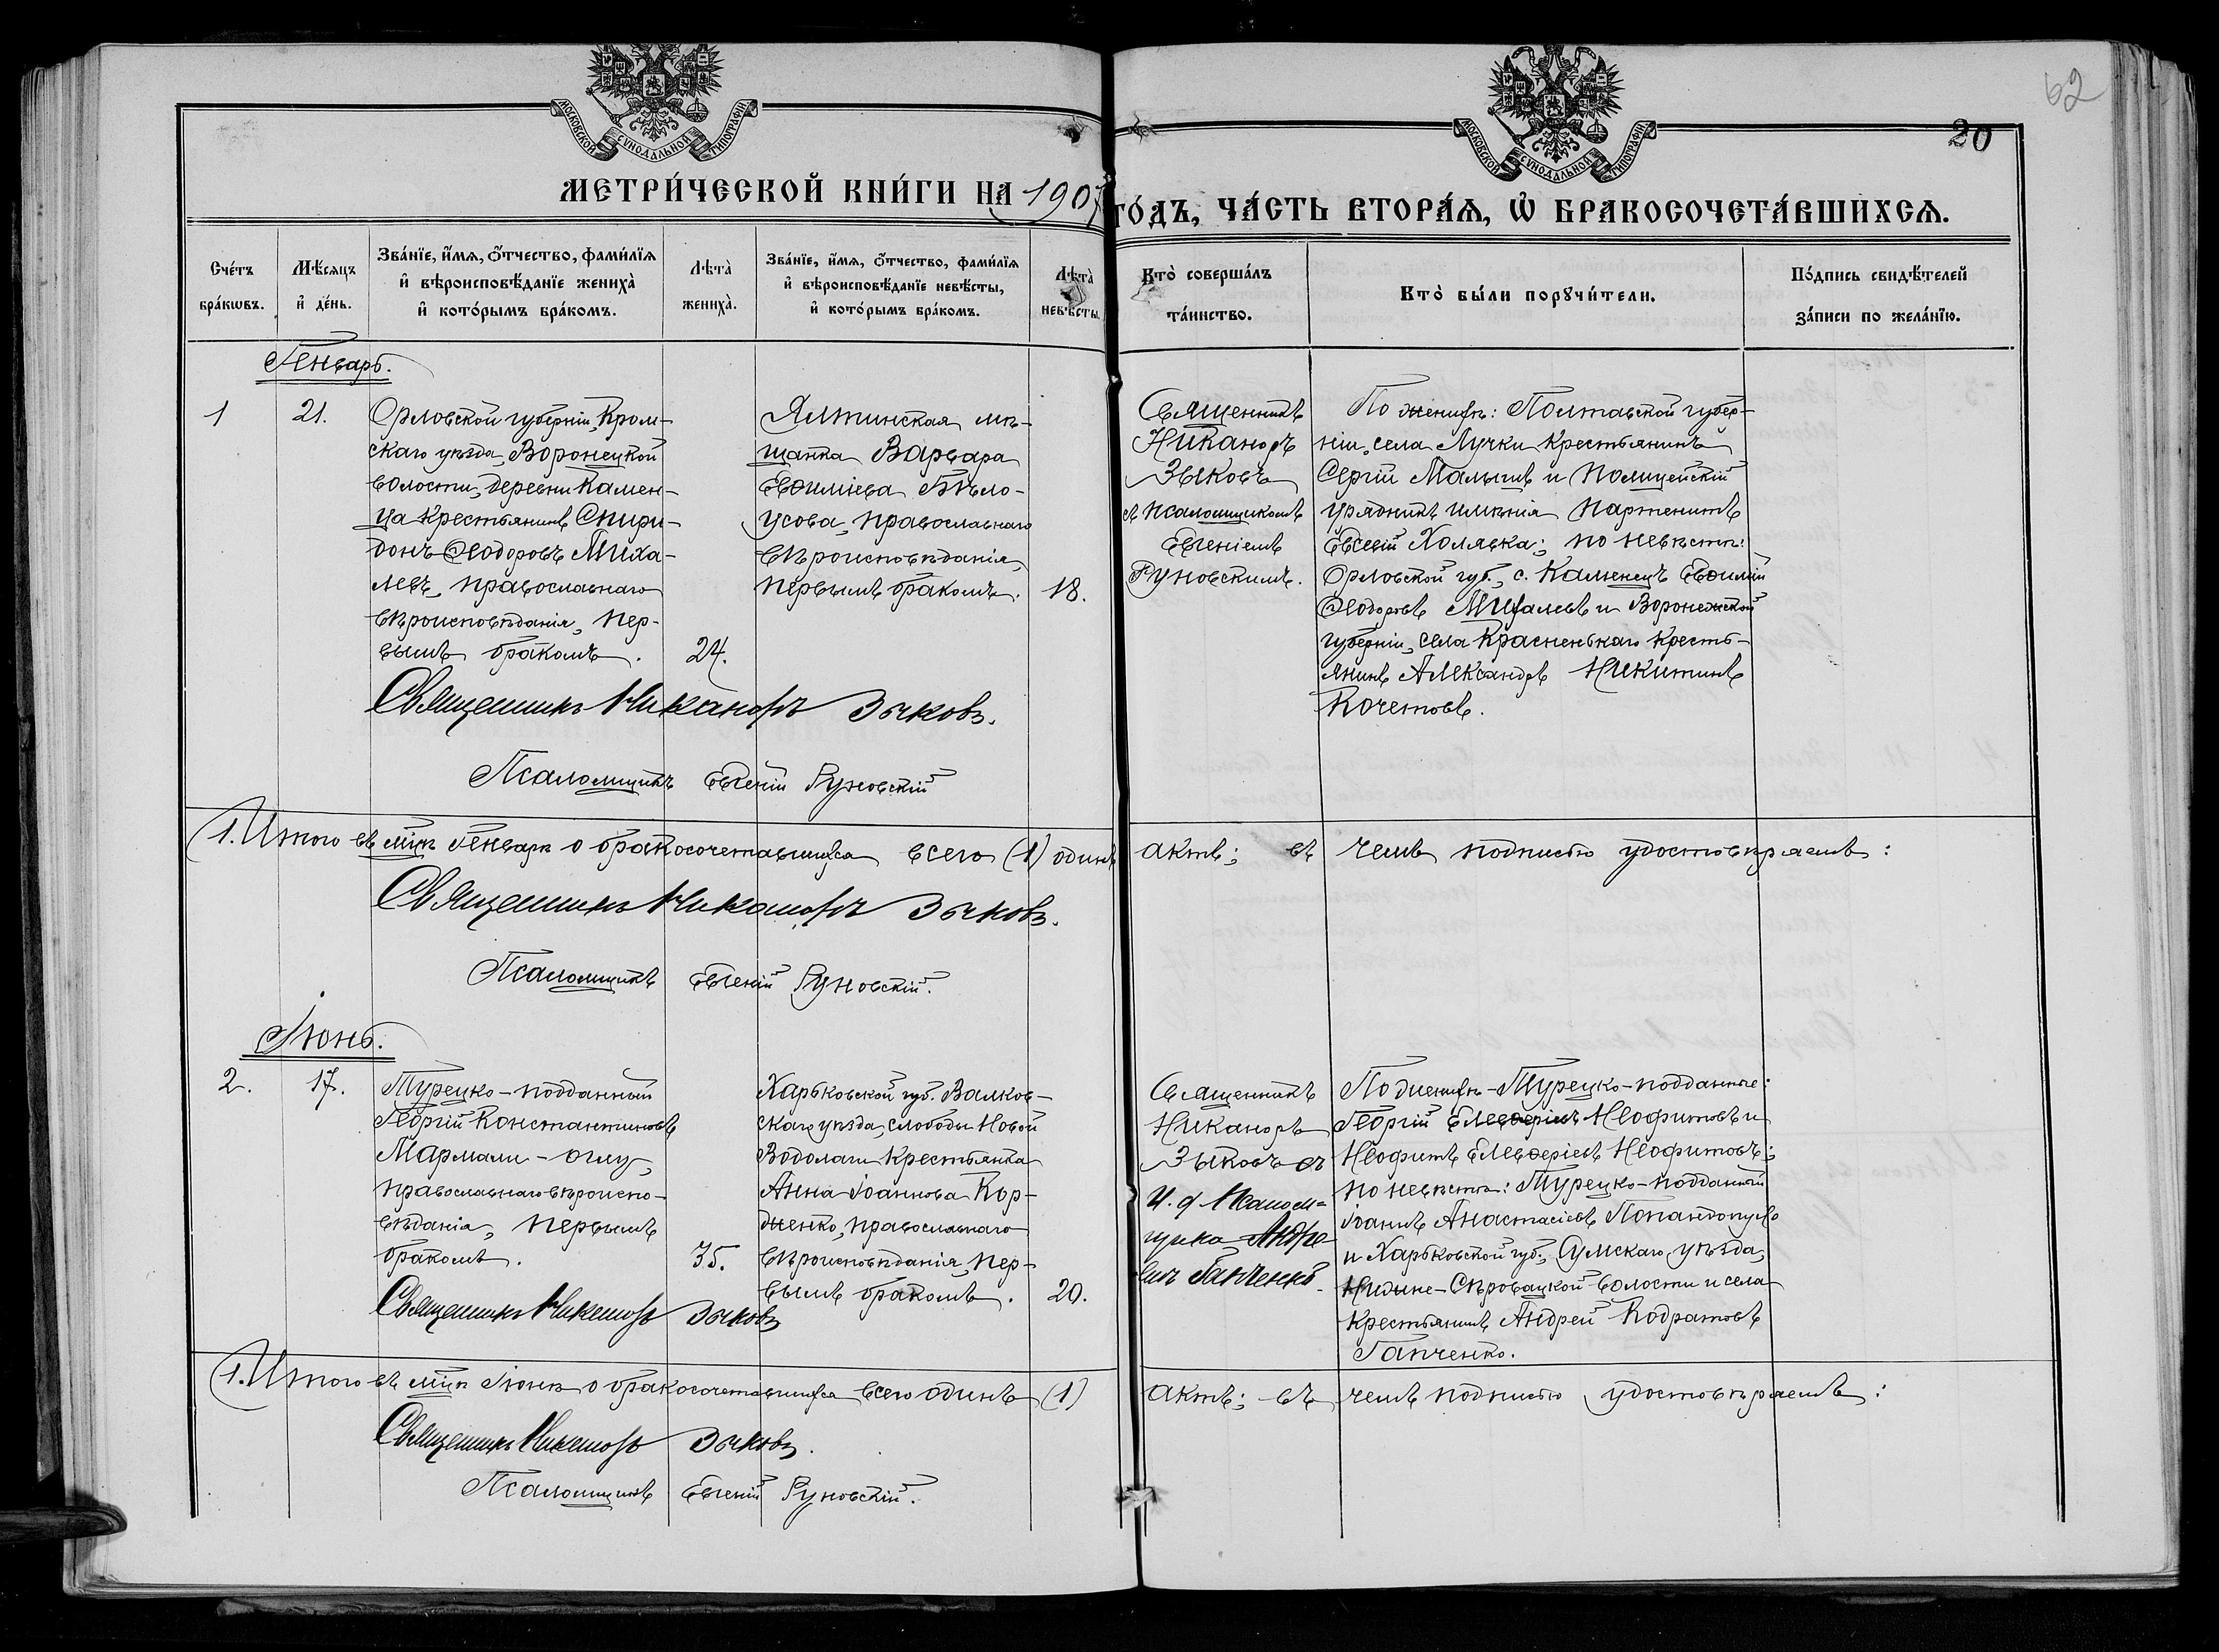 62
20
МОСКОВСКОЙ СѴНОДАЛЬНОЙ ТИПОГРАФІИ
МОСКОВСКОЙ СѴНОДАЛЬНОЙ ТИПОГРАФІИ
МЕТРИ́ЧЕСКОЙ КНИ́ГИ НА 1907 ГО́ДЪ, ЧА́СТЬ ВТОРА́Ѧ, Ѡ҆ БРАКОСОЧЕТА́ВШИХСѦ.
Сче́тъ бра́кѡвъ.
Мѣ́сѧцъ и҆ де́нь.
Зва́нїе, и҆́мѧ, ѻ҆́тчество, фами́лїѧ
и҆ вѣроисповѣ́данїе жениха̀
и҆ кото́рымъ бра́комъ.
Лѣта̀ жениха̀.
Зва́нїе, и҆́мѧ, ѻ҆́тчество, фами́лїѧ
и҆ вѣроисповѣ́данїе невѣ́сты,
и҆ кото́рымъ бра́комъ.
Лѣта̀ невѣ́сты.
Кто̀ соверша́лъ та́инство.
Кто̀ бы́ли порꙋчи́тели.
По́дпись свидѣ́телей за́писи по жела́нїю.
Генварь.
1
21.
Орловской губерніи, Кром-
скаго уѣзда, Воронецкой
волости, деревни Камен-
ца крестьянинъ Спири-
донъ Ѳеодоровъ Миха-
левъ, православнаго
вѣроисповѣданія, пер-
вымъ бракомъ.
24.
Ялтинская мѣ-
щанка Варвара
Евѳиміева Бѣло-
усова, православнаго
вѣроисповѣданія,
первымъ бракомъ.
18.
Священникъ
Никаноръ
Зыковъ
съ псаломщикомъ
Евгеніемъ
Руновскимъ.
По женихѣ: Полтавской губер-
ніи, села Лучки крестьянинъ
Сергій Малышъ и полицейскій
урядникъ имѣнія Партенитъ
Евсевій Холявка; по невѣстѣ:
Орловской губ., с. Каменецъ Евѳимій
Ѳеодоровъ Михалевъ и Воронежской
губерніи, села Красненькаго кресть-
янинъ Александръ Никитинъ
Кочетовъ.
Священникъ Никаноръ Зыковъ.
Псаломщикъ Евгеній Руновскій
1. Итого въ мцѣ Генварѣ о бракосочетавшихся всего (1) одинъ актъ; въ чемъ подписью удостовѣряемъ:
Священникъ Никаноръ Зыковъ.
Псаломщикъ Евгеній Руновскій.
Іюнь.
2.
17.
Турецко-подданный
Георгій Константиновъ
Мармали-оглу,
православнаго вѣроиспо-
вѣданія, первымъ
бракомъ.
35.
Харьковской губ. Валков-
скаго уѣзда, слободы Новой
Водолаги крестьянка
Анна Іоаннова Кор-
диенко, православнаго
вѣроисповѣданія, пер-
вымъ бракомъ.
20.
Священникъ
Никаноръ
Зыковъ съ
И. д. Псалом-
щика Андре-
емъ Гапченко.
По женихѣ-Турецко-подданные:
Георгій Елевѳеріевъ Неофитовъ и
Неофитъ Елевѳеріевъ Неофитовъ;
по невѣстѣ: Турецко-подданный
Іоаннъ Анастасіевъ Попандопуло
и Харьковской губ., Сумскаго уѣзда,
Нижне-Сѣроватской волости и села
крестьянинъ Андрей Кодратовъ
Гапченко.
Священникъ Никаноръ Зыковъ
1. Итого въ мцѣ Іюнѣ о бракосочетавшихся всего одинъ (1) актъ; въ чемъ подписью удостовѣряемъ:
Священникъ Никаноръ Зыковъ.
Псаломщикъ Евгеній Руновскій.